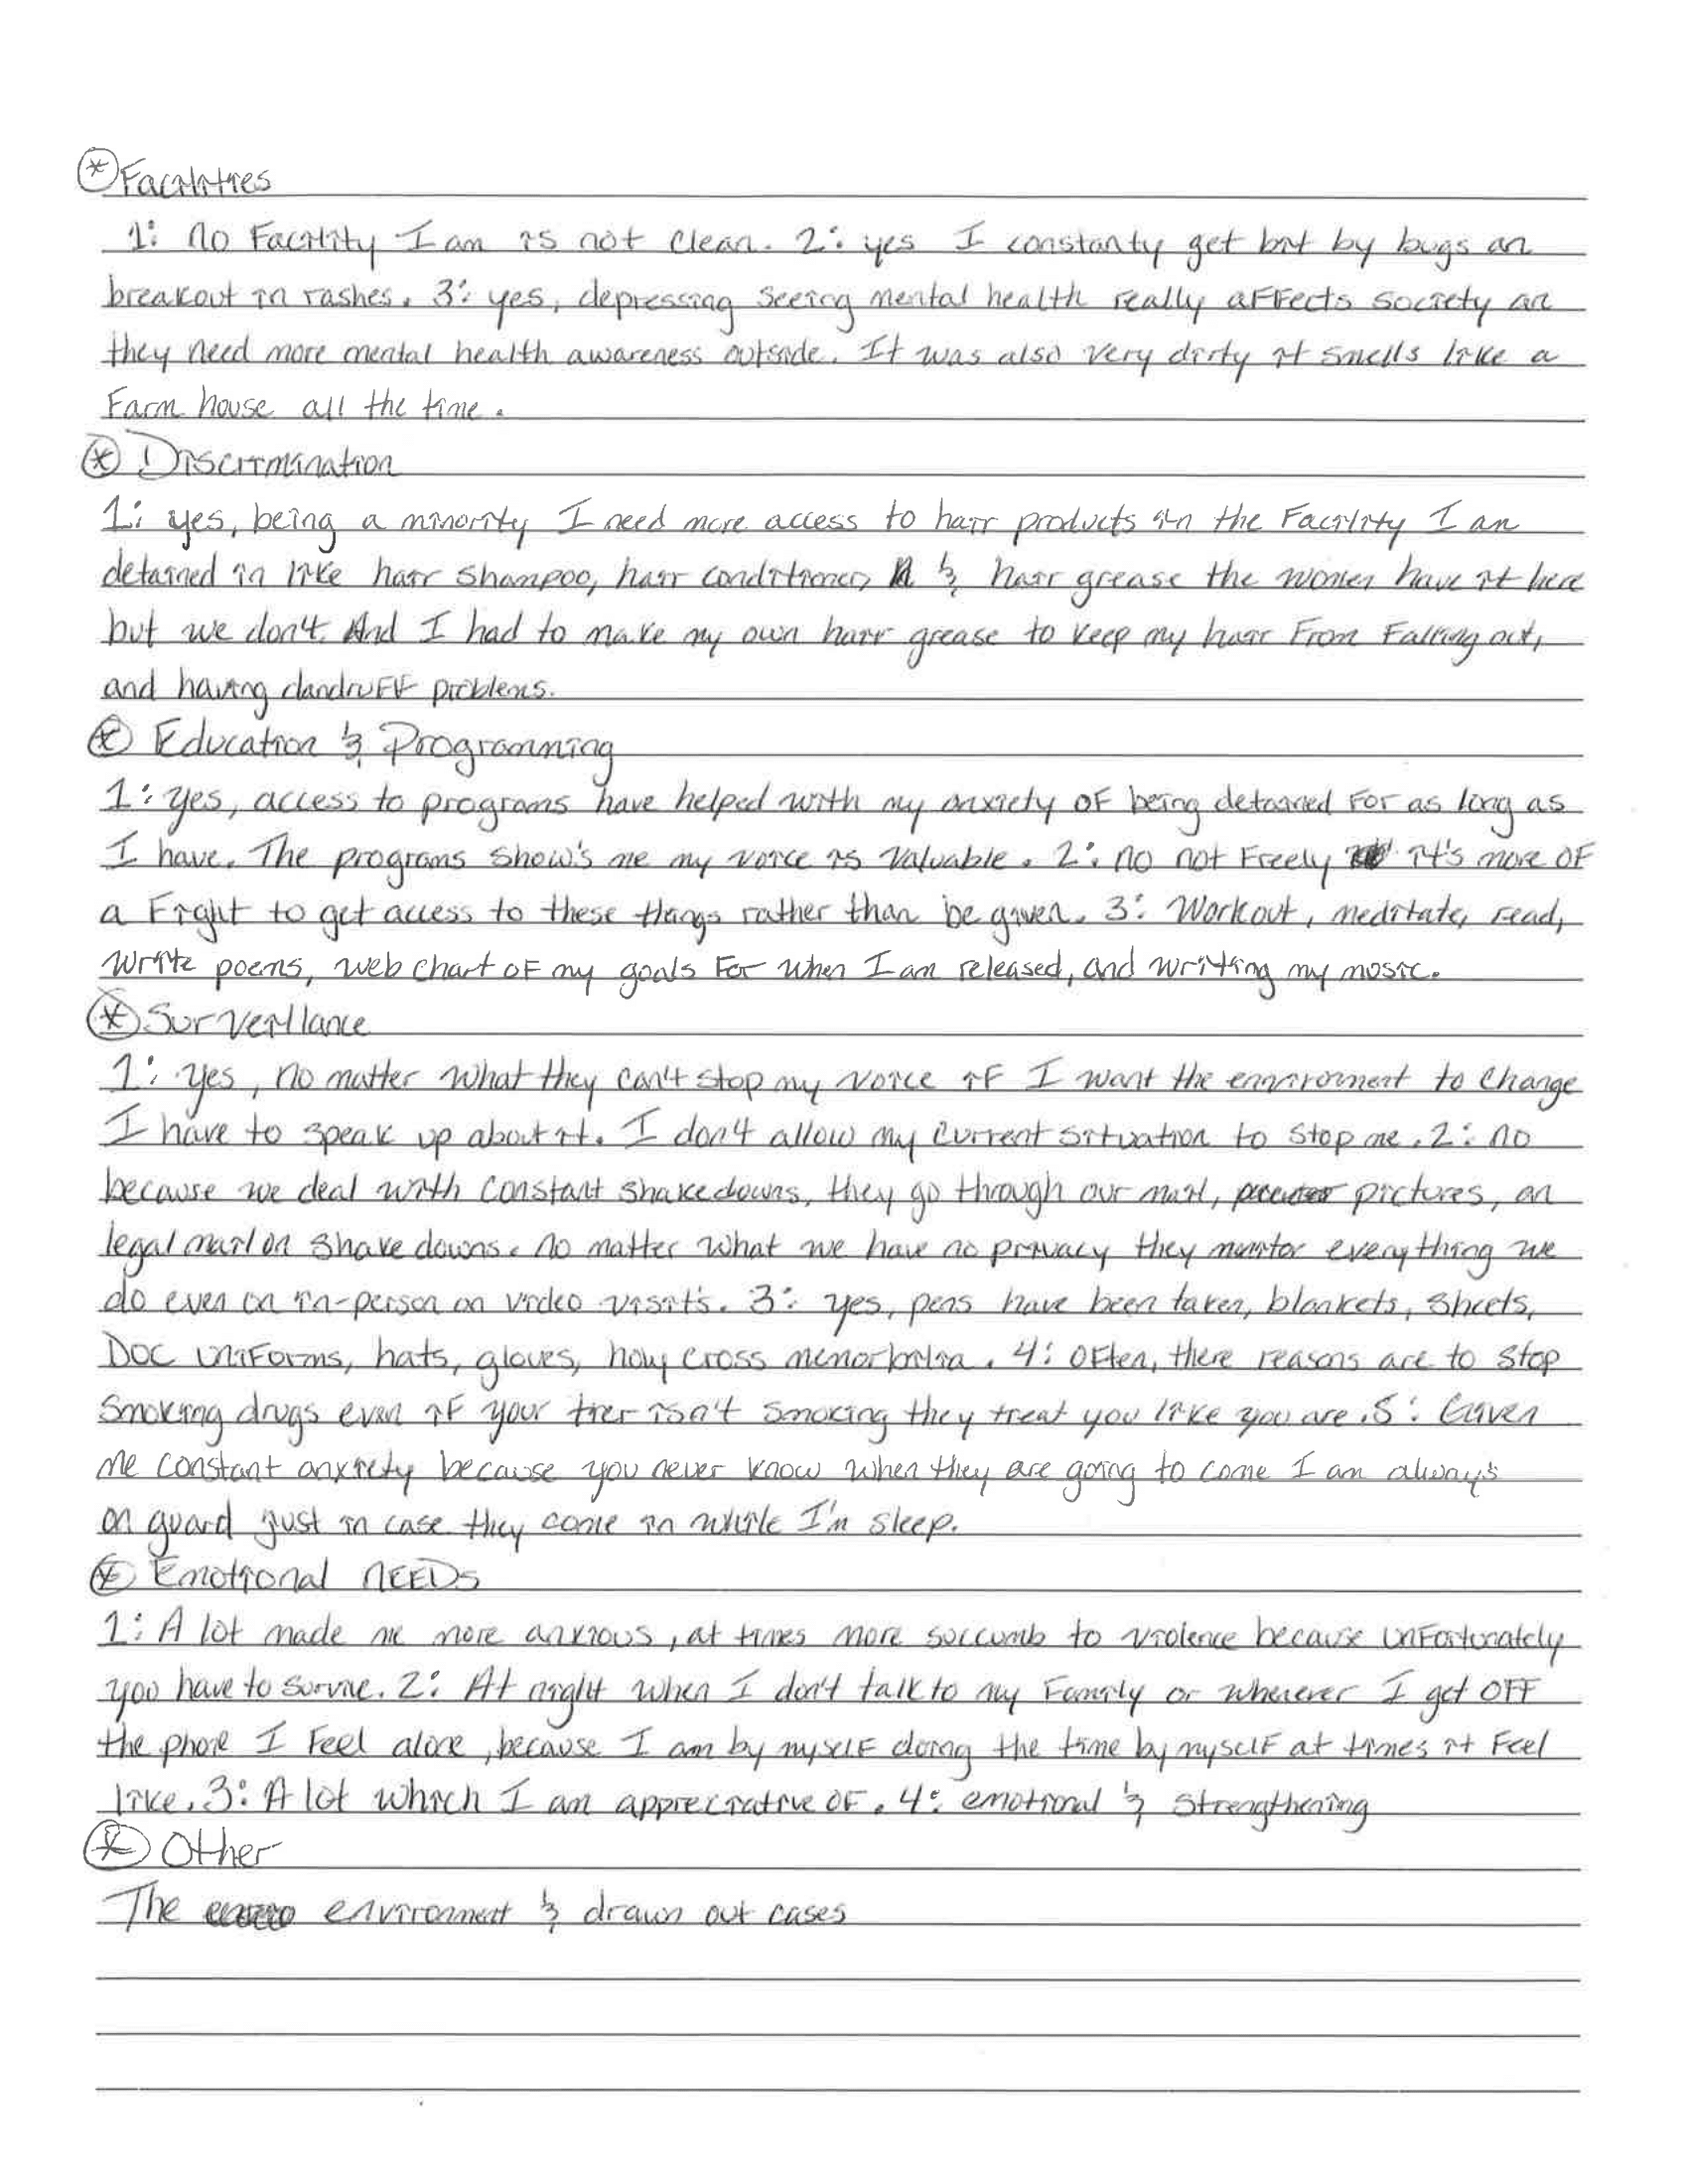 * Facilities
1: no Facility I am is not clean. 2: yes I constanty get bit by bugs an
breakout in rashes. 3: yes, depressing seeing mental health really affects society an
they need more mental health awareness outside. It was also very dirty it smells like a
Farm house all the time.
* Discrimination
1: yes, being a minority I need more access to hair products in the Facility I am
detained in like hair shampoo, hair conditioner, & hair grease the women have it here
but we don't. And I had to make my own hair grease to keep my hair From Falling out,
and having dandruff problems.
* Education & Programming
1: yes, access to programs have helped with my anxiety of being detained For as long as
I have. The programs show's me my voice is valuable. 2: no not Freely it's more of
a Fight to get access to these things rather than be given. 3: Workout, meditate, read,
write poems, web chart of my goals For when I am released, and writing my music.
* Surveillance
1: yes, no matter what they can't stop my voice if I want the environment to change
I have to speak up about it. I don't allow my current situation to stop me. 2: no
because we deal with constant shakedowns, they go through our mail, pictures, an
legal mail on shake downs. no matter what we have no privacy they monitor everything we
do even on in-person on video visit's. 3: yes, pens have been taken, blankets, sheets,
DOC uniforms, hats, gloves, holy cross . 4: often, there reasons are to stop
smoking drugs even if your tier isn't smoking they treat you like you are. 5: Given
me constant anxiety because you never know when they are going to come I am always
on guard just in case they come in while I'm sleep.
* Emotional NEEDs
1: A lot made me more anxious, at times more succumb to violence because unfortunately
you have to survive. 2: At night when I don't talk to my Family or whenever I get off
the phone I Feel alone, because I am by myself doing the time by myself at times it Feel
like. 3: A lot which I am appreciative of. 4: emotional & strengthening
* Other
The environment & drawn out cases